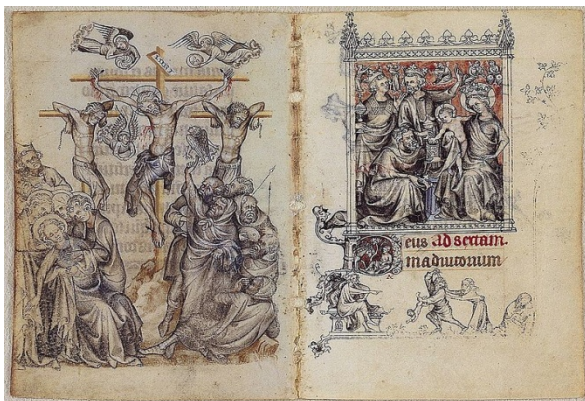 Deus ad sextam.
in adiutorium